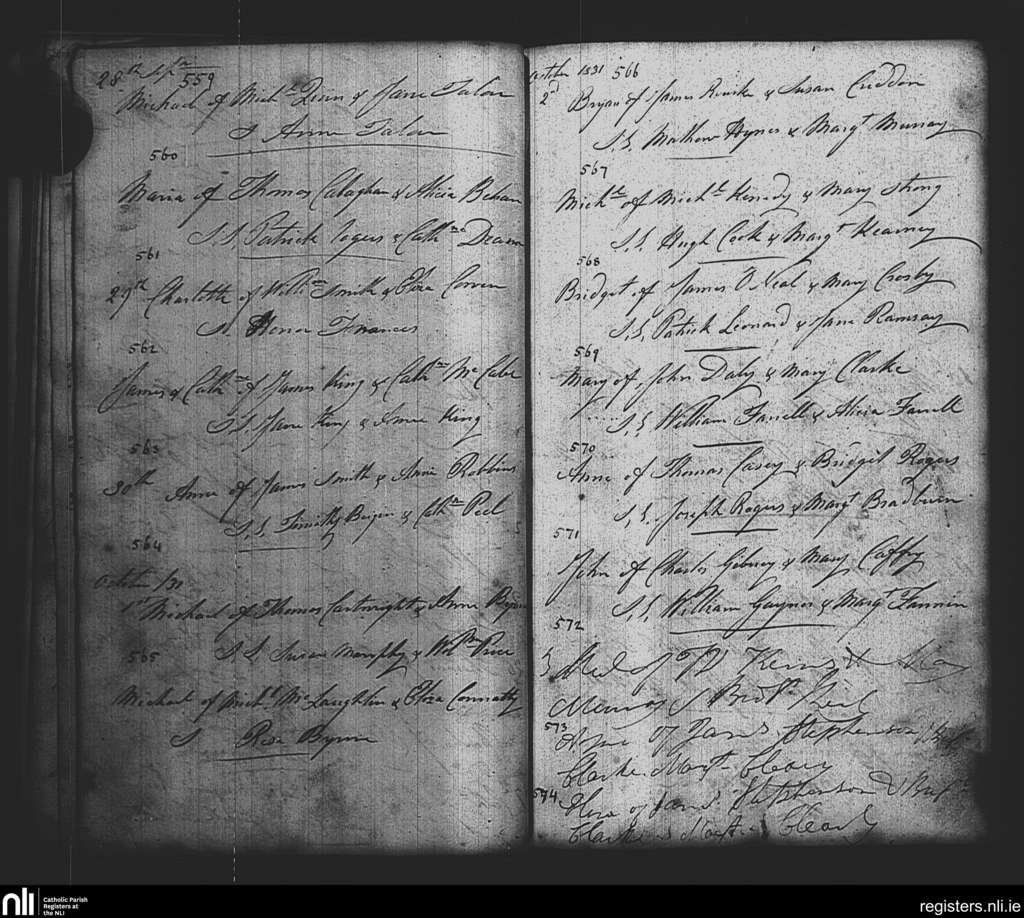 28th Sepr 559
Michael of Michl Quin & Jane Talon
S Anne Talon
560
Maria of Thomas Calaghan & Alicia Behan
S.S. Patrick Rogers & Cathne
561
29th Charlotte of Willm Smith & Eliza
S. Honor Frances
562
James & Cathne of James King & Cathne McCabe
S.S. Jane King & Anne King
563
30th Anne of James Smith & Anne Robbins
S.S. Timothy & Cathne Peel
564
October /31
1st Michael of Thomas Cartwright & Anne Byrne
565
S.S. Susan Murphy & Willm Price
Michael of Michl McLaughlin & Eliza Connatty
S Rose Byrne
October 1831 566
2d Bryan of James Rourke & Susan Cuddon
S.S. Mathew Hynes & Margt Murray
567
Michl of Michl Kenedy & Mary Strong
S.S. Hugh Cook & Margt Kearney
568
Bridget of James O'Neal & Mary Crosby
S.S. Patrick Leonard & Jane Ramsay
569
Mary of John Daly & Mary Clarke
S.S. William Farrell & Alicia Farrell
570
Anne of Thomas Casey & Bridget Rogers
S.S. Joseph Rogers & Margt Bradburn
571
John of Charles Gibney & Mary Caffry
S.S. William Gaynor & Margt Fannin
572
3 of & Mary
573
of James Stephenson &
Clarke Cleary
574 Eliza of James Stephenson &
Clarke Cleary
nli
Catholic Parish
Registers at
the NLI
registers.nli.ie